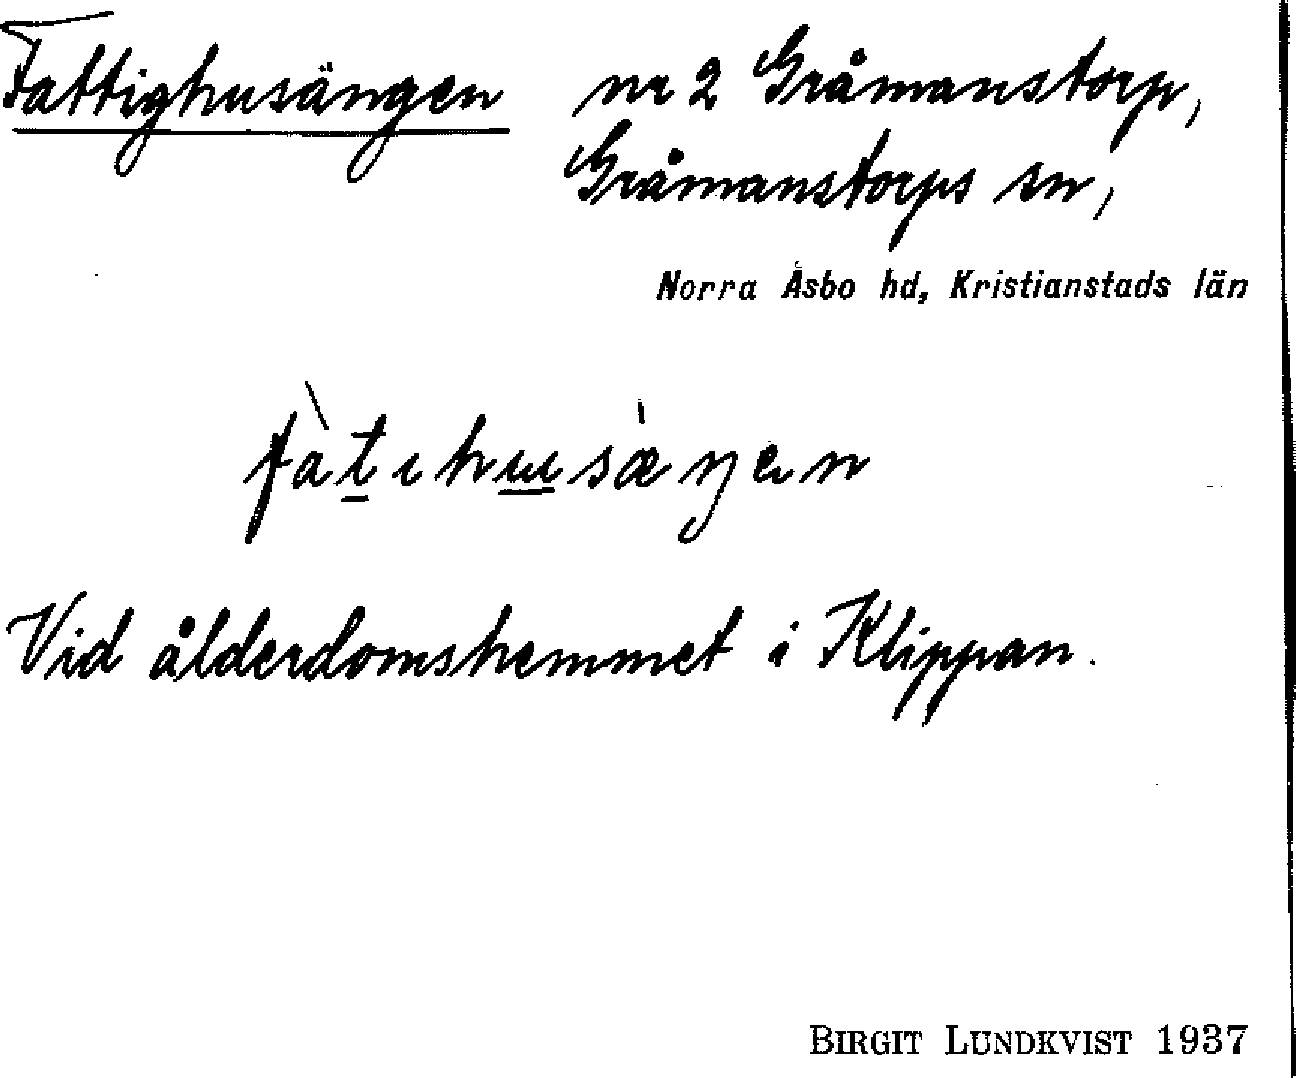 Fattighusängen nr 2 Gråmanstorp,
Gråmanstorps sn,
Norra Åsbo hd, Kristianstads län
fàtıhusæŋen
Vid ålderdomshemmet i Klippan.
BIRGIT LUNDKVIST 1937